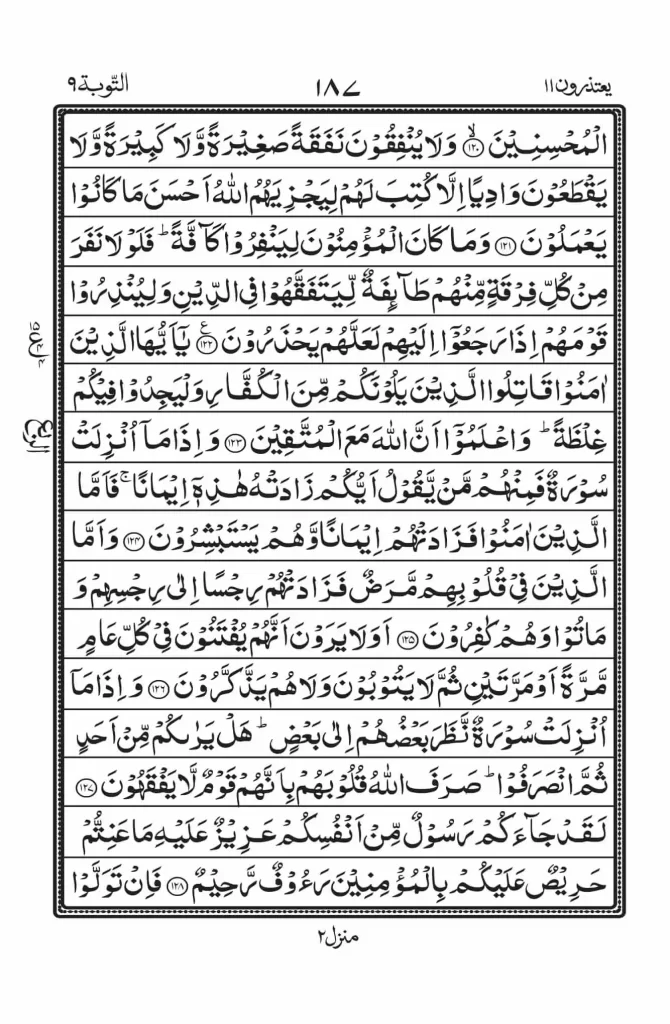 يعتذرون١١ ١٨٧ التّوبة٩
الۡمُحۡسِنِيۡنَ ﴿١٢٠﴾ وَلَا يُنۡفِقُوۡنَ نَفَقَةً صَغِيۡرَةً وَّلَا كَبِيۡرَةً وَّلَا
يَقۡطَعُوۡنَ وَادِيًا اِلَّا كُتِبَ لَهُمۡ لِيَجۡزِيَهُمُ اللّٰهُ اَحۡسَنَ مَا كَانُوۡا
يَعۡمَلُوۡنَ ﴿١٢١﴾ وَمَا كَانَ الۡمُؤۡمِنُوۡنَ لِيَنۡفِرُوۡا كَآفَّةً ؕ فَلَوۡلَا نَفَرَ
مِنۡ كُلِّ فِرۡقَةٍ مِّنۡهُمۡ طَآٮِٕفَةٌ لِّيَتَفَقَّهُوۡا فِى الدِّيۡنِ وَلِيُنۡذِرُوۡا
قَوۡمَهُمۡ اِذَا رَجَعُوۡۤا اِلَيۡهِمۡ لَعَلَّهُمۡ يَحۡذَرُوۡنَ ﴿١٢٢﴾ ع يٰۤاَيُّهَا الَّذِيۡنَ
اٰمَنُوۡا قَاتِلُوا الَّذِيۡنَ يَلُوۡنَكُمۡ مِّنَ الۡكُفَّارِ وَلۡيَجِدُوۡا فِيۡكُمۡ
غِلۡظَةً ؕ وَاعۡلَمُوۡۤا اَنَّ اللّٰهَ مَعَ الۡمُتَّقِيۡنَ ﴿١٢٣﴾ وَاِذَا مَاۤ اُنۡزِلَتۡ
سُوۡرَةٌ فَمِنۡهُمۡ مَّنۡ يَّقُوۡلُ اَيُّكُمۡ زَادَتۡهُ هٰذِهٖۤ اِيۡمَانًا ۚ فَاَمَّا
الَّذِيۡنَ اٰمَنُوۡا فَزَادَتۡهُمۡ اِيۡمَانًا وَّهُمۡ يَسۡتَبۡشِرُوۡنَ ﴿١٢٤﴾ وَاَمَّا
الَّذِيۡنَ فِىۡ قُلُوۡبِهِمۡ مَّرَضٌ فَزَادَتۡهُمۡ رِجۡسًا اِلٰى رِجۡسِهِمۡ وَ
مَاتُوۡا وَهُمۡ كٰفِرُوۡنَ ﴿١٢٥﴾ اَوَلَا يَرَوۡنَ اَنَّهُمۡ يُفۡتَنُوۡنَ فِىۡ كُلِّ عَامٍ
مَّرَّةً اَوۡ مَرَّتَيۡنِ ثُمَّ لَا يَتُوۡبُوۡنَ وَلَا هُمۡ يَذَّكَّرُوۡنَ ﴿١٢٦﴾ وَاِذَا مَاۤ
اُنۡزِلَتۡ سُوۡرَةٌ نَّظَرَ بَعۡضُهُمۡ اِلٰى بَعۡضٍ ؕ هَلۡ يَرٰٮكُمۡ مِّنۡ اَحَدٍ
ثُمَّ انْصَرَفُوۡا ؕ صَرَفَ اللّٰهُ قُلُوۡبَهُمۡ بِاَنَّهُمۡ قَوۡمٌ لَّا يَفۡقَهُوۡنَ ﴿١٢٧﴾
لَـقَدۡ جَآءَكُمۡ رَسُوۡلٌ مِّنۡ اَنۡفُسِكُمۡ عَزِيۡزٌ عَلَيۡهِ مَا عَنِتُّمۡ
حَرِيۡصٌ عَلَيۡكُمۡ بِالۡمُؤۡمِنِيۡنَ رَءُوۡفٌ رَّحِيۡمٌ ﴿١٢٨﴾ فَاِنۡ تَوَلَّوۡا
الربع
منزل٢